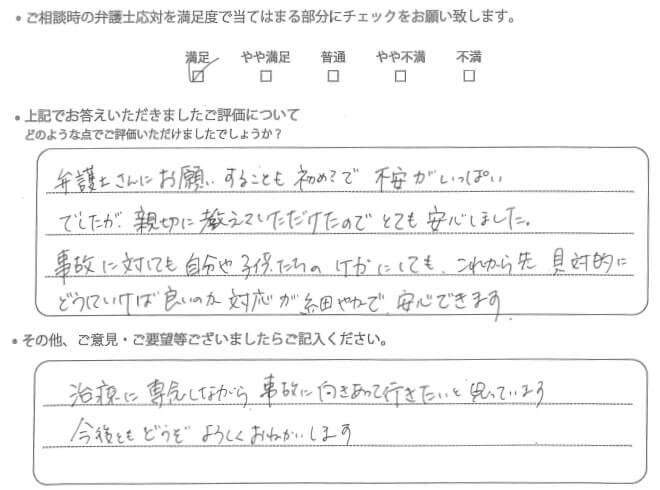 ・ご相談時の弁護士応対を満足度で当てはまる部分にチェックをお願い致します。
満足 やや満足 普通 やや不満 不満
・上記でお答えいただきましたご評価について
どのような点でご評価いただけましたでしょうか？
弁護士さんにお願いすることも初めてで 不安がいっぱい
でしたが、親切に教えていただけたのでとても安心しました。
事故に対しても自分や子供たちのけがにしても、これから先 具体的に
どうしていけば良いのか対応が細やかで、安心できます。
・その他、ご意見・ご要望等ございましたらご記入ください。
治療に専念しながら、事故に向きあって行きたいと思っています
今後ともどうぞ よろしくおねがいします